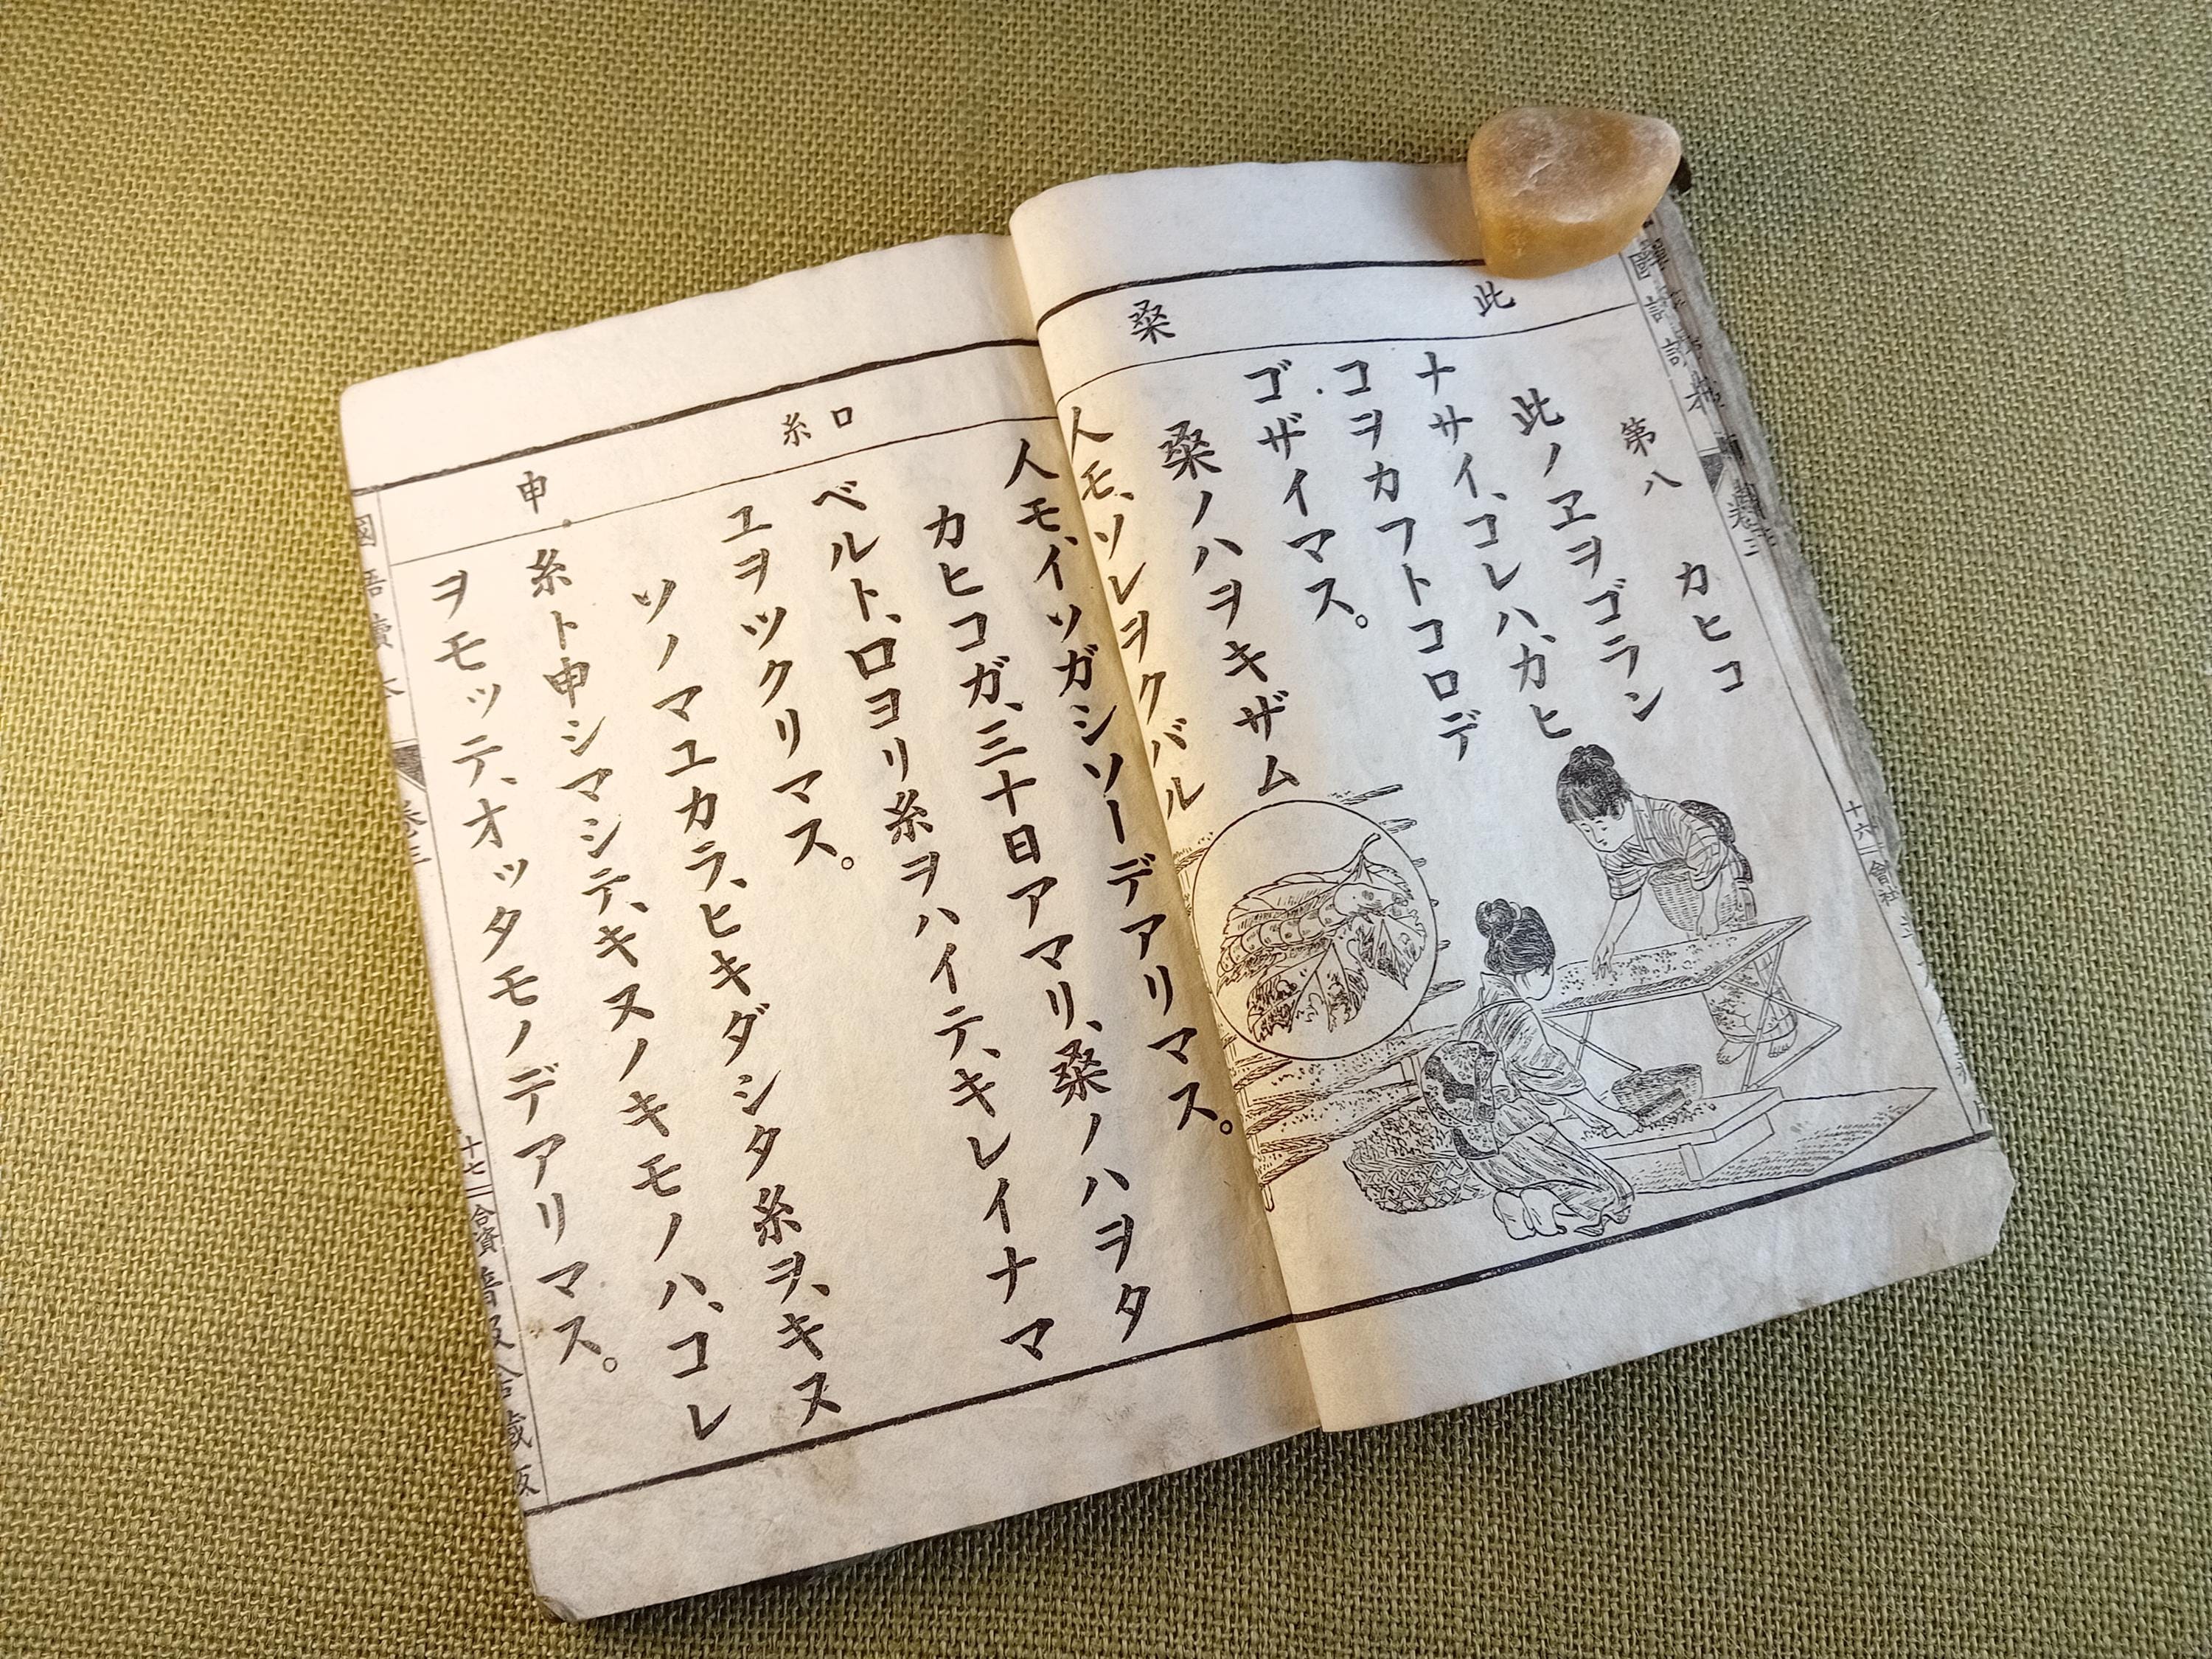 此
桑
第八 カヒコ
此ノヱヲゴラン
ナサイ、コレハ、カヒ
コヲカフトコロデ
ゴザイマス。
桑ノハヲキザム
人モ、ソレヲクバル
人モ、イソガシソーデアリマス。
カヒコガ、三十日アマリ、桑ノハヲタ
ベルト、口ヨリ糸ヲハイテ、キレイナマ
ユヲツクリマス。
ソノマユカラ、ヒキダシタ糸ヲ、キヌ
糸ト申シマシテ、キヌノキモノハ、コレ
ヲモッテ、オッタモノデアリマス。
口
糸
申
卷三
十六
會社
國語讀本
卷三
十七
合資